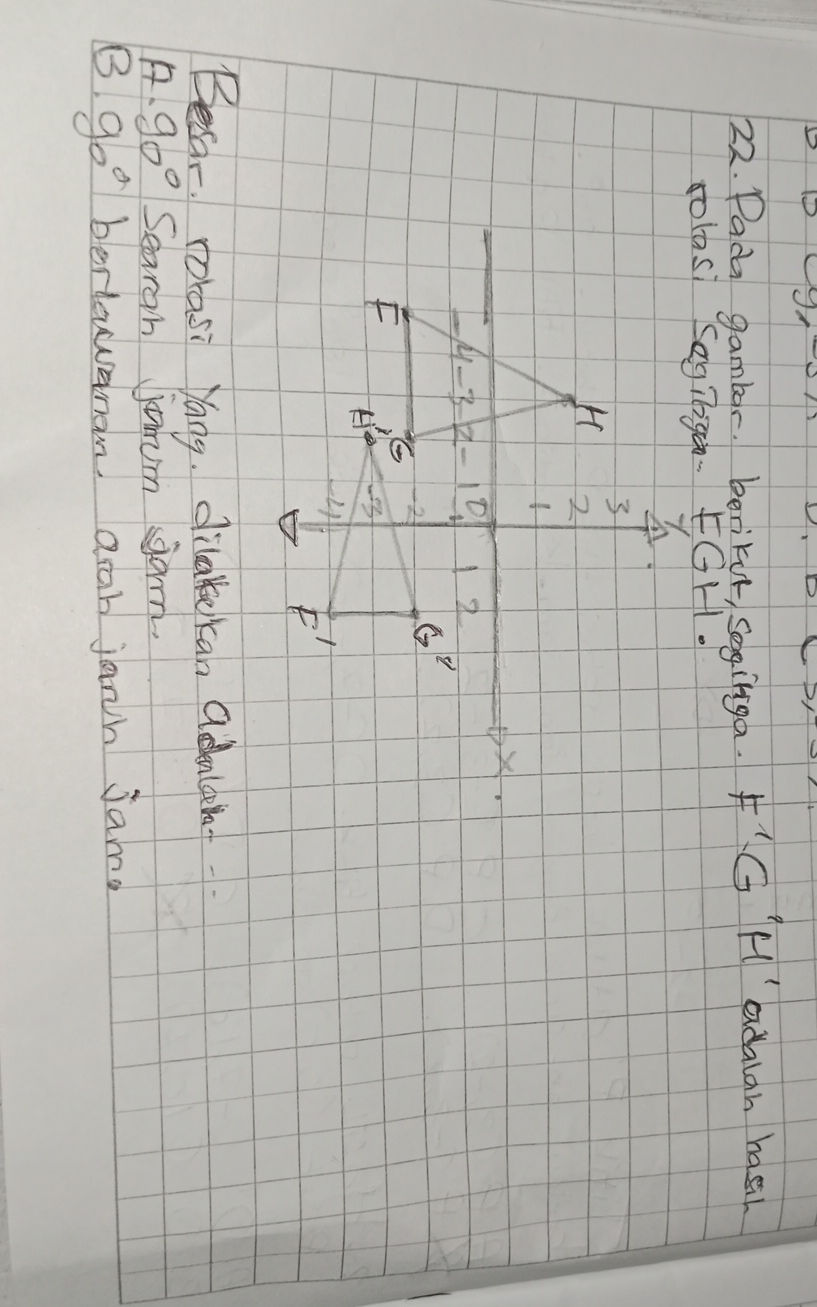 22. Pada gambar. berikut, segitiga. E'.G'H' adalah hasil
rotasi Segitiga. EGH.
Y
3
2
1
0
-4 -3 -2 -1
1 2
X
-1
-2
-3
-4
H
E
G
H'
G'
E'
Besar. rotasi yang. dilakukan adalah...
A. 90° Searah jarum jam.
B. 90° berlawanan. arah jarum jam.